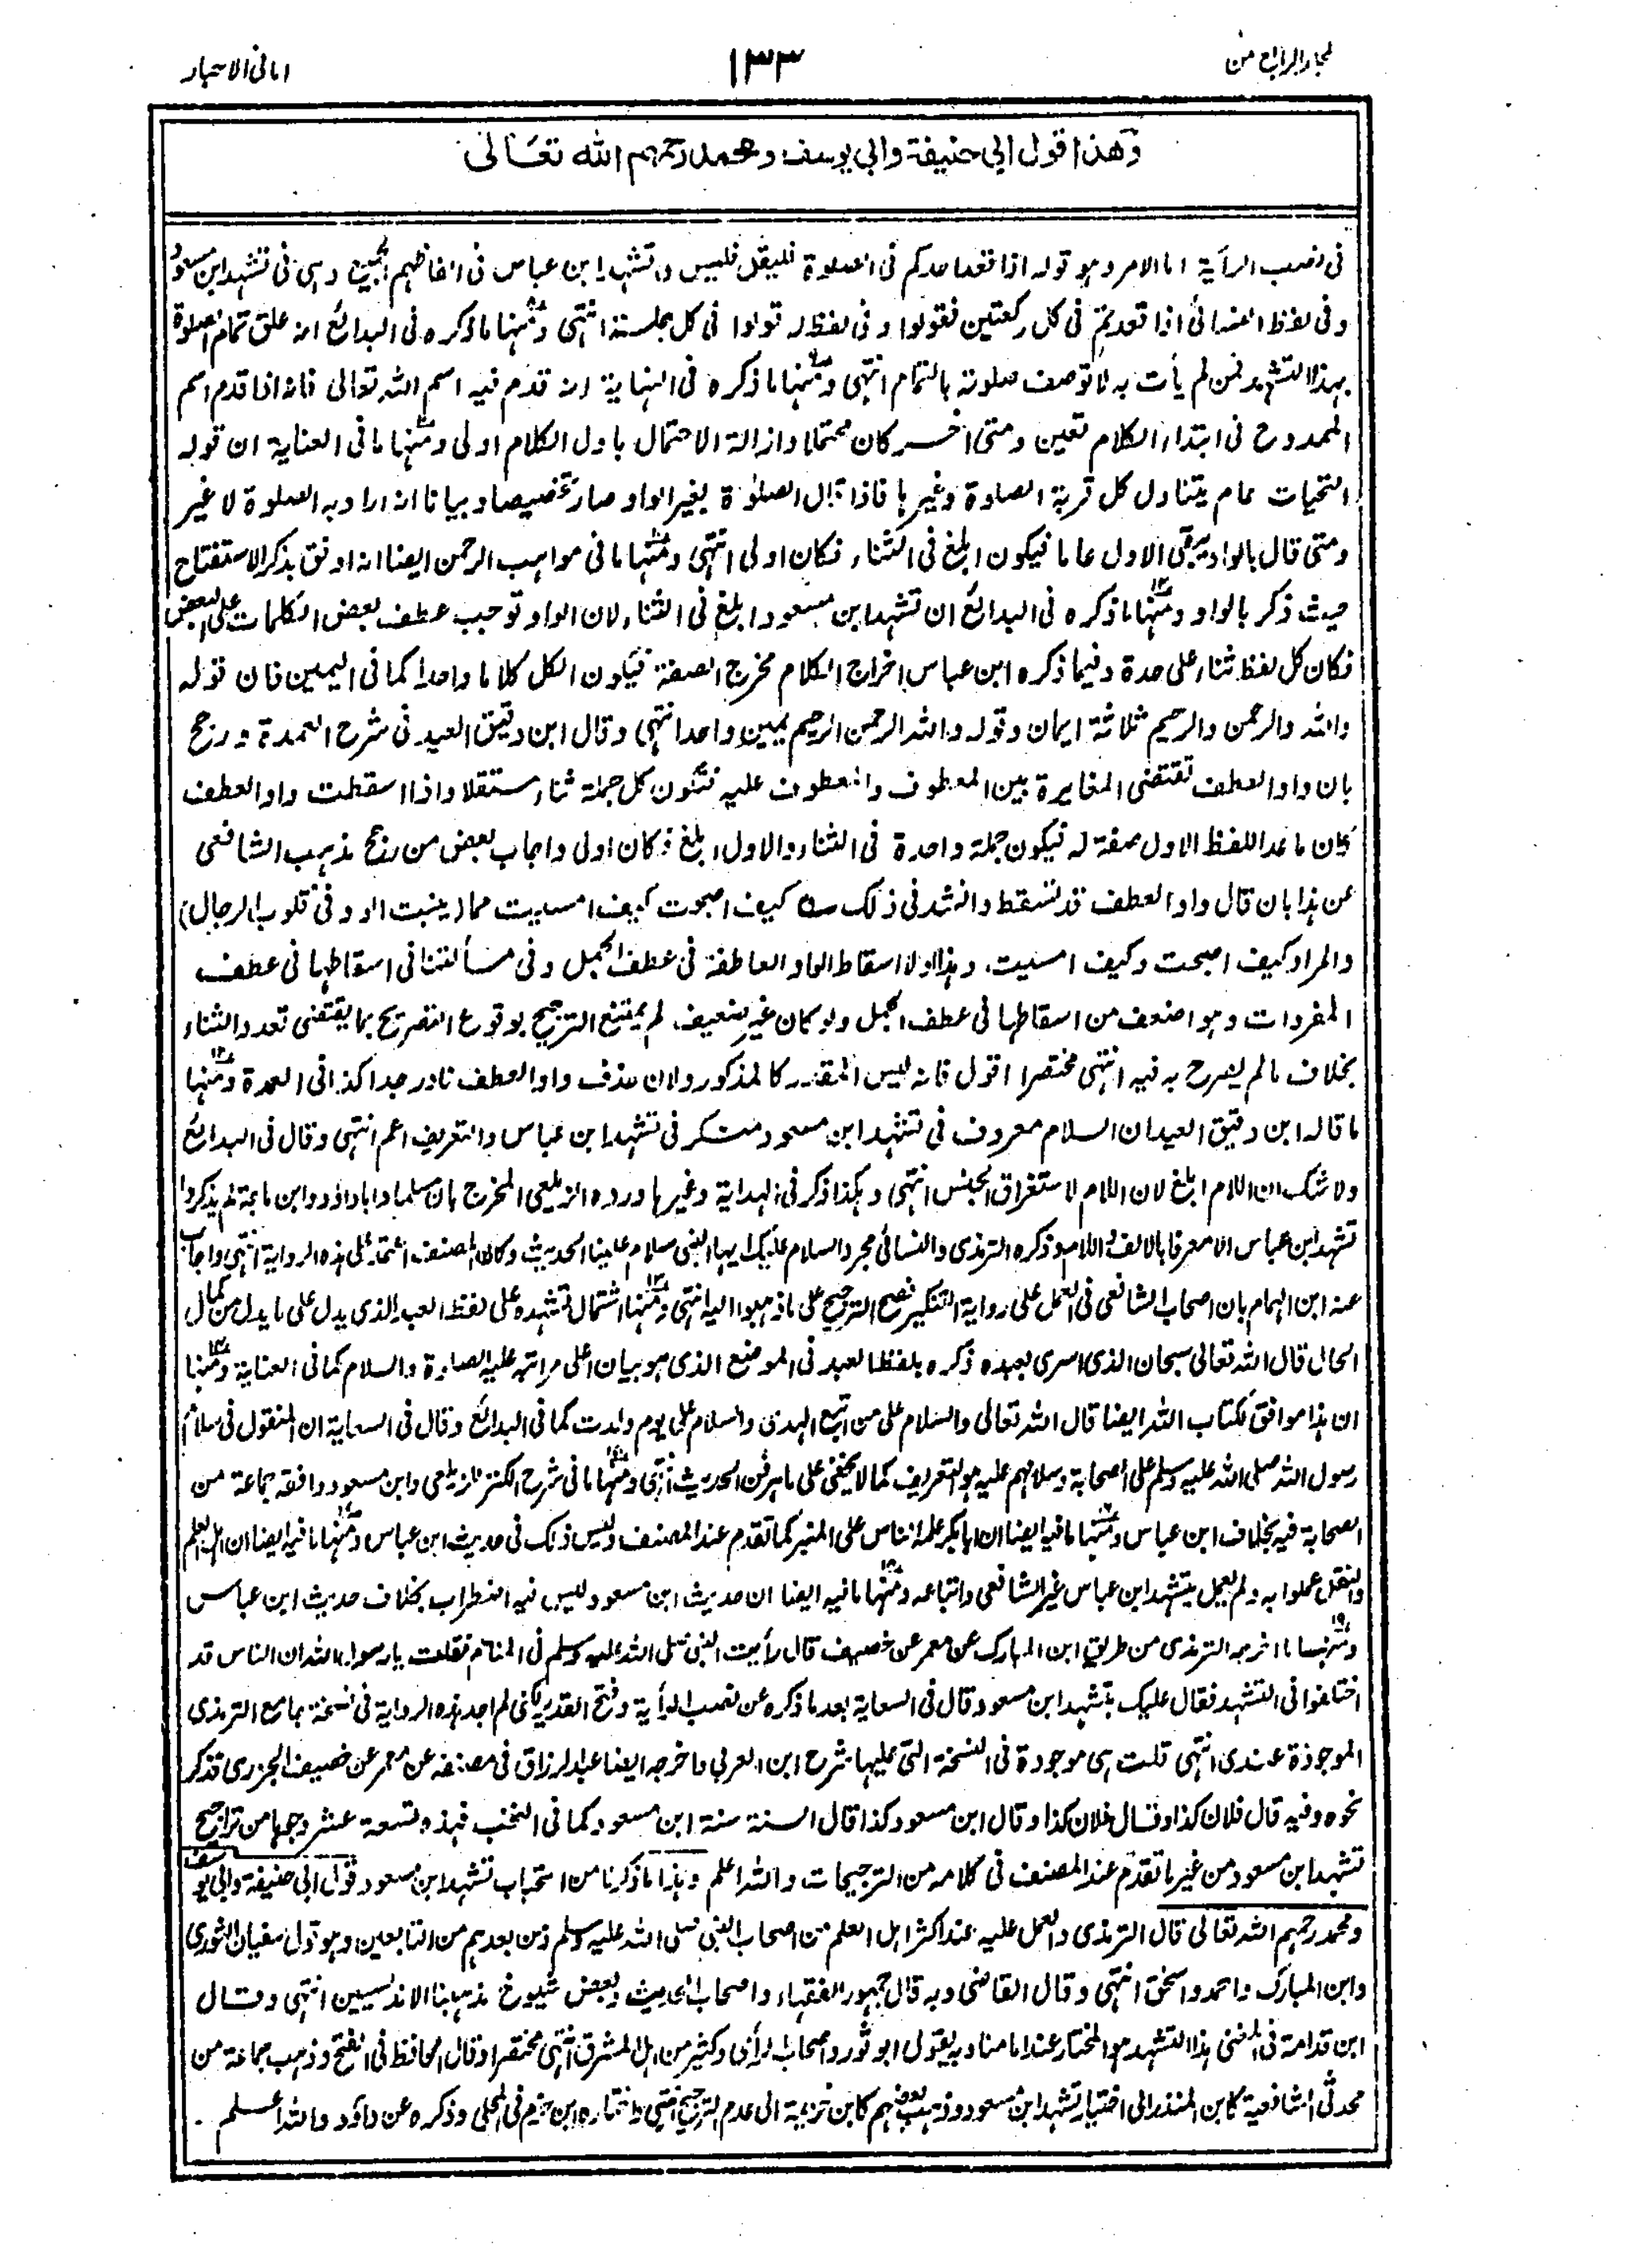 المجلد الرابع من
١٣٣
امانی الاحبار
وهذا قول ابی حنیفة وابی یوسف ومحمد رحمهم الله تعالى
فی نصب الرأیة اما الامر وہو قولہ اذا قعد احدکم فی الصلوة فلیقل فلیس فی تشہد ابن عباس فی الفاظہم الجمیع وہی فی تشہد ابن مسعود
وفی لفظ النسائی اذا قعدتم فی کل رکعتین فقولوا وفی لفظ لہ قولوا فی کل جلسة انتہی ومنہا ما ذکرہ فی البدائع انہ علق تمام الصلوة
بہذا التشہد فمن لم یأت بہ لا توصف صلوتہ بالتمام انتہی ومنہا ما ذکرہ فی النہایة انہ قدم فیہ اسم اللہ تعالی فانہ اذا قدم اسم
الممدوح فی ابتداء الکلام تعین ومتی اخر کان محتملا وازالة الاحتمال باول الکلام اولی ومنہا ما فی العنایة ان قولہ
التحیات عام یتناول کل قربة الصلوة وغیرہا فاذا قال الصلوة بغیر الواو صار تخصیصا وبیانا انہ اراد بہ الصلوة لا غیر
ومتی قال بالواو یبقی الاول عاما فیکون ابلغ فی الثناء فکان اولی انتہی ومنہا ما فی مواہب الرحمن ایضا انہ اوفق بذکر الاستفتاح
حیث ذکر بالواو ومنہا ما ذکرہ فی البدائع ان تشہد ابن مسعود ابلغ فی الثناء لان الواو توجب عطف بعض الکلمات علی البعض
فکان کل لفظ ثناء علی حدة وفیما ذکرہ ابن عباس اخراج الکلام مخرج الصفة فیکون الکل کلاما واحدا کما فی الیمین فان قولہ
واللہ والرحمن والرحیم ثلاثة ایمان وقولہ واللہ الرحمن الرحیم یمین واحد انتہی وقال ابن دقیق العید فی شرح العمدة ورجح
بان واو العطف تقتضی المغایرة بین المعطوف والمعطوف علیہ فتکون کل جملة ثناء مستقلا واذا اسقطت واو العطف
کان ما عدا اللفظ الاول صفة لہ فیکون جملة واحدة فی الثناء والاول ابلغ فکان اولی واجاب بعض من رجح مذہب الشافعی
عن ہذا بان قال واو العطف قد تسقط وانشد فی ذلک ؎ کیف اصبحت کیف امسیت مما (ینبت الود فی قلوب الرجال)
والمراد کیف اصبحت وکیف امسیت، وہذا اولا اسقاط الواو العاطفة فی عطف الجمل وفی مسألتنا فی اسقاطہا فی عطف
المفردات وہو اضعف من اسقاطہا فی عطف الجمل ولو کان غیر ضعیف لم یمتنع الترجیح بوقوع التصریح بما یقتضی تعدد الثناء
بخلاف مالم یصرح بہ فیہ انتہی مختصرا اقول فانہ لیس المقدر کالمذکور ولان حذف واو العطف نادر جدا کذا فی العمدة ومنہا
ما قالہ ابن دقیق العید ان السلام معروف فی تشہد ابن مسعود منکر فی تشہد ابن عباس والتعریف اعم انتہی وقال فی البدائع
ولا شک ان اللام ابلغ لان اللام لاستغراق الجنس انتہی وہکذا ذکر فی الہدایة وغیرہا ورده الزیلعی المخرج بان مسلما وابا داؤد وابن ماجة لم یذکروا
تشہد ابن عباس الا معرفا بالالف واللام وذکرہ الترمذی والنسائی مجردا سلام علیک ایہا النبی سلام علینا الحدیث وکان المصنف اعتمد علی ہذہ الروایة انتہی واجاب
عنہ ابن الہمام بان اصحاب الشافعی فی العمل علی روایة التنکیر فصح الترجیح علی ما ذہبوا الیہ انتہی ومنہا اشتمال تشہدہ علی لفظ العبد الذی یدل علی ما یدل من کمال
الحال قال اللہ تعالی سبحان الذی اسری بعبدہ ذکرہ بلفظ العبد فی الموضع الذی ہو بیان اعلی مراتبہ علیہ الصلوة والسلام کما فی العنایة ومنہا
ان ہذا موافق لکتاب اللہ ایضا قال اللہ تعالی والسلام علی من اتبع الہدی والسلام علی یوم ولدت کما فی البدائع وقال فی السعایة ان المنقول فی سلام
رسول اللہ صلی اللہ علیہ وسلم علی اصحابہ وسلامہم علیہ ہو التعریف کما لا یخفی علی ماہر فن الحدیث انتہی ومنہا ما فی شرح الکنز للزیلعی وابن مسعود وافقہ جماعة من
الصحابة فیہ بخلاف ابن عباس ومنہا ما فیہ ایضا ان ابا بکر علمہ الناس علی المنبر کما تقدم عند المصنف ولیس ذلک فی حدیث ابن عباس ومنہا ما فیہ ایضا ان اہل العلم
والنقل عملوا بہ ولم یعمل بتشہد ابن عباس غیر الشافعی واتباعہ ومنہا ما فیہ ایضا ان حدیث ابن مسعود لیس فیہ اضطراب بخلاف حدیث ابن عباس
ومنہا ما اخرجہ الترمذی من طریق ابن المبارک عن معمر عن خصیف قال رأیت النبی صلی اللہ علیہ وسلم فی المنام فقلت یا رسول اللہ ان الناس قد
اختلفوا فی التشہد فقال علیک بتشہد ابن مسعود وقال فی السعایة بعد ما ذکرہ عن نصب الرأیة وفتح القدیر لکنی لم اجد ہذہ الروایة فی نسخة جامع الترمذی
الموجودة عندی انتہی قلت ہی موجودة فی النسخة التی علیہا شرح ابن العربی واخرجہ ایضا عبد الرزاق فی مصنفہ عن معمر عن خصیف الجزری فذکر
نحوہ وفیہ قال فلان کذا وقال فلان کذا وقال ابن مسعود کذا قال السنة سنة ابن مسعود کما فی النخب فہذہ تسعة عشر وجہا من تراجیح
تشہد ابن مسعود من غیر ما تقدم عند المصنف فی کلامہ من الترجیحات واللہ اعلم وہذا ما ذکرنا من استحباب تشہد ابن مسعود قول ابی حنیفة وابی یوسف
ومحمد رحمہم اللہ تعالی قال الترمذی والعمل علیہ عند اکثر اہل العلم من اصحاب النبی صلی اللہ علیہ وسلم ومن بعدہم من التابعین وہو قول سفیان الثوری
وابن المبارک واحمد واسحق انتہی وقال القاضی وبہ قال جمہور الفقہاء واصحاب الحدیث وبعض شیوخ مذہبنا الاندلسیین انتہی وقال
ابن قدامة فی المغنی ہذا التشہد ہو المختار عند امامنا وبہ یقول ابو ثور واصحاب الرأی وکثیر من اہل المشرق انتہی مختصرا وقال الحافظ فی الفتح وذہب جماعة من
محدثی الشافعیة کابن المنذر الی اختیار تشہد ابن مسعود وذہب بعضہم کابن خزیمة الی عدم الترجیح انتہی واختارہ ابن حزم فی المحلی وذکرہ عن داؤد واللہ اعلم .